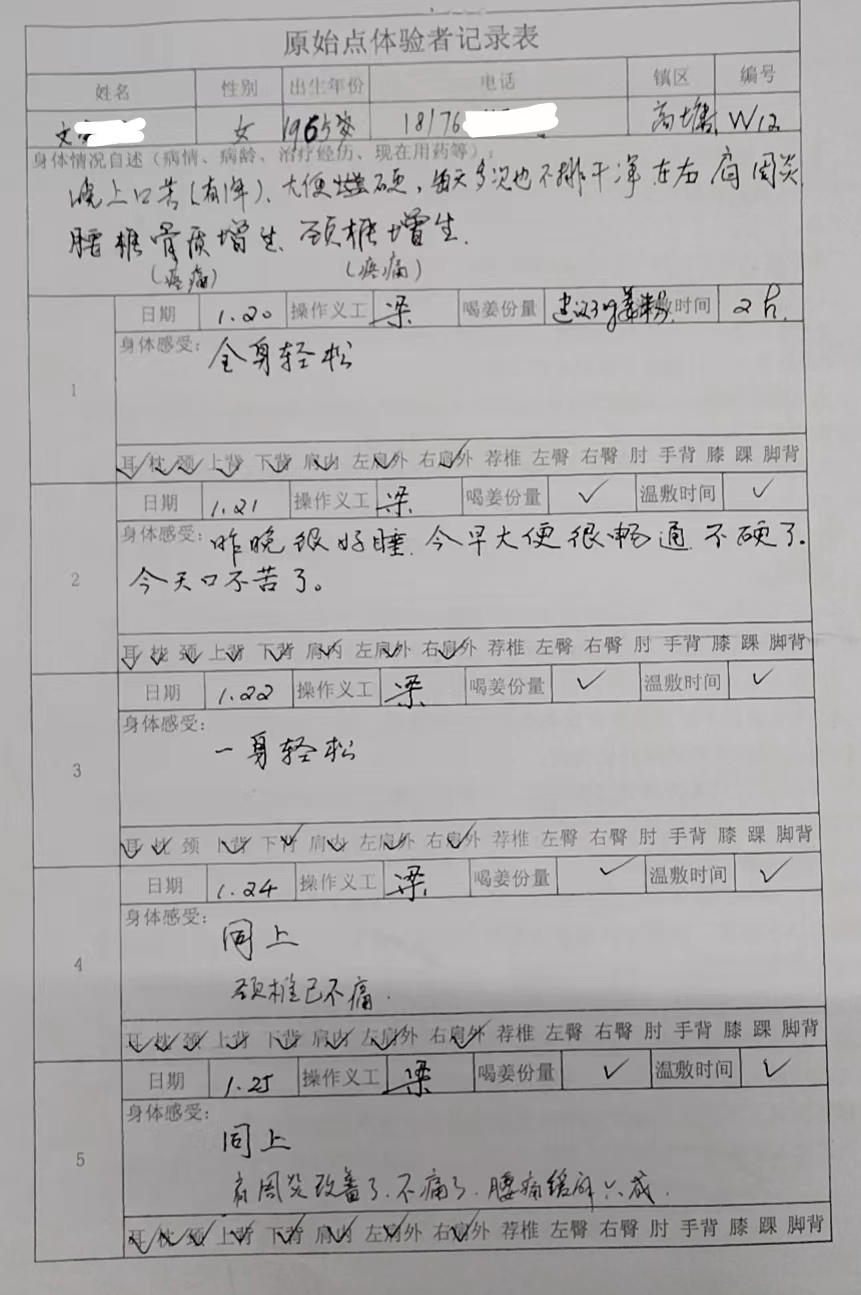 原始点体验者记录表
姓名 性别 出生年份 电话 镇区 编号
文 女 1965 18176 高塘 W12
身体情况自述（病情、病龄、治疗经历、现在用药等）:
晚上口苦(有1年)、大便硬，每天多次也不排干净 左右肩周炎
腰椎骨质增生、颈椎增生.
(疼痛) (疼痛)
1
日期 1.20 操作义工 梁 喝姜份量 建议3g姜粉 温敷时间 2h.
身体感受: 全身轻松
耳 枕 颈 上背 下背 肩内 左肩外 右肩外 荐椎 左臀 右臀 肘 手背 膝 踝 脚背
2
日期 1.21 操作义工 梁 喝姜份量 ✓ 温敷时间 ✓
身体感受: 昨晚很好睡. 今早大便很畅通. 不硬了.
今天口不苦了。
耳 枕 颈 上背 下背 肩内 左肩外 右肩外 荐椎 左臀 右臀 肘 手背 膝 踝 脚背
3
日期 1.22 操作义工 梁 喝姜份量 ✓ 温敷时间 ✓
身体感受:
一身轻松
耳 枕 颈 上背 下背 肩内 左肩外 右肩外 荐椎 左臀 右臀 肘 手背 膝 踝 脚背
4
日期 1.24 操作义工 梁 喝姜份量 ✓ 温敷时间 ✓
身体感受:
同上
颈椎已不痛.
耳 枕 颈 上背 下背 肩内 左肩外 右肩外 荐椎 左臀 右臀 肘 手背 膝 踝 脚背
5
日期 1.25 操作义工 梁 喝姜份量 ✓ 温敷时间 ✓
身体感受:
同上
肩周炎改善了.不痛了.腰痛缓解六成.
耳 枕 颈 上背 下背 肩内 左肩外 右肩外 荐椎 左臀 右臀 肘 手背 膝 踝 脚背